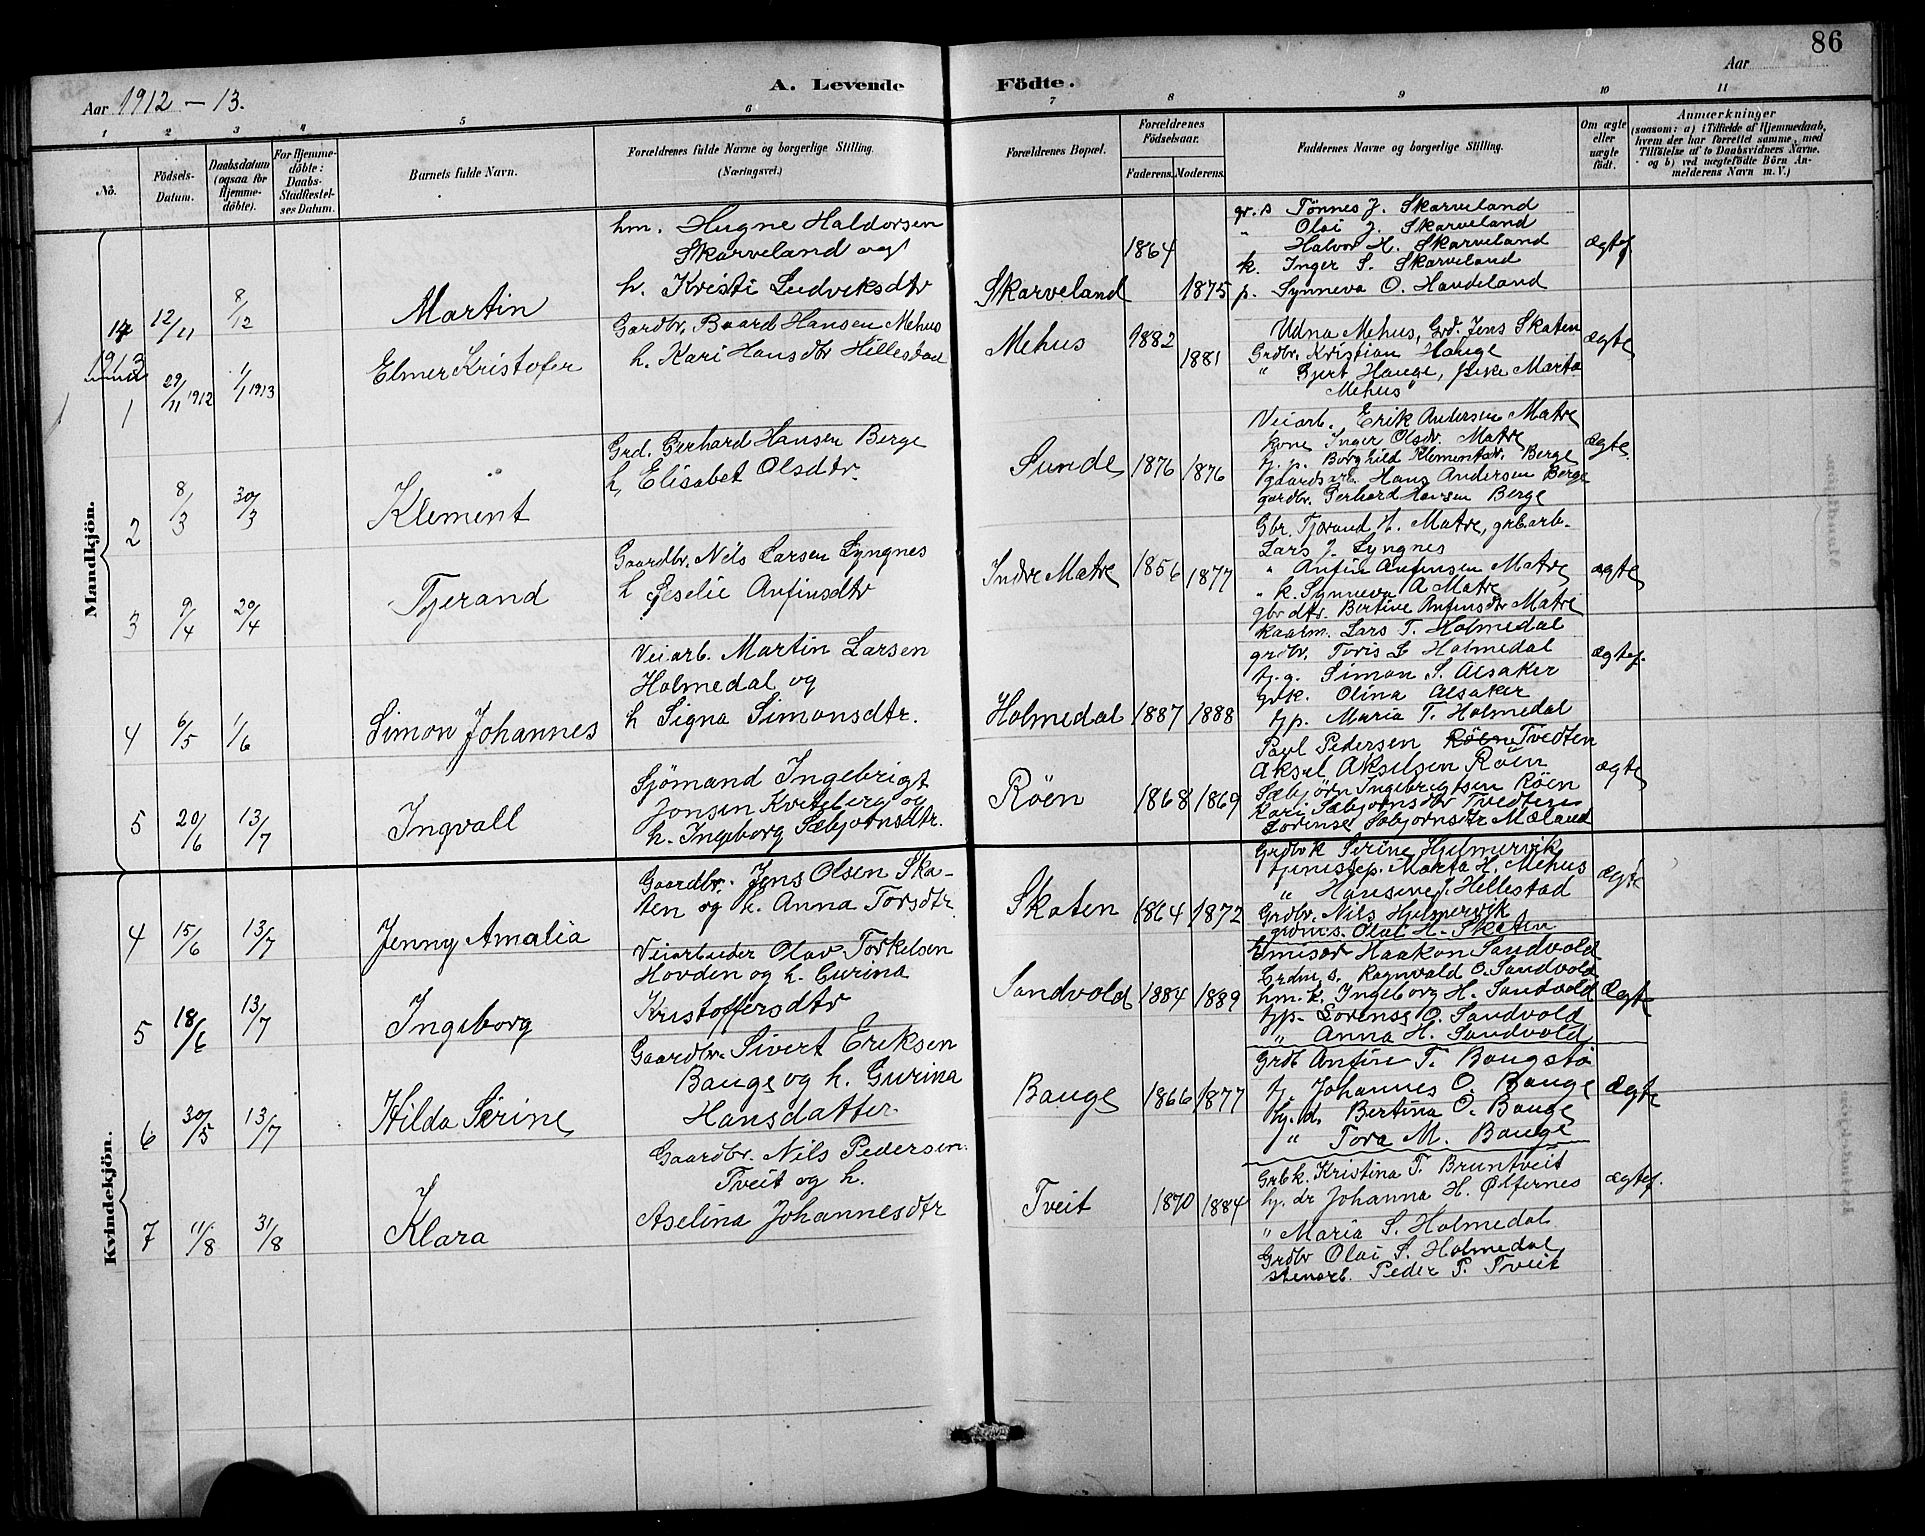 86
Aar 1912 - 13.
A. Levende Födte.
Aar
1 2 3 4 5 6 7 8 9 10 11
Nö.
Födsels-Datum.
Daabsdatum (ogsaa for Hjemmedöbte).
For Hjemmedöbte: Daabs-Stadfæstelses Datum.
Barnets fulde Navn.
Forældrenes fulde Navne og borgerlige Stilling. (Næringsvei.)
Forældrenes Bopæl.
Forældrenes Födselsaar.
Faderens. Moderens.
Faddernes Navne og borgerlige Stilling.
Om ægte eller uægte födt.
Anmærkninger
(saasom: a) i Tilfælde af Hjemmedaab,
hvem der har forrettet samme, med
Tilföielse af to Daabsvidners Navne.
og b) ved uegteföde Börn Anmelderens Navn m. V.)
Mandkjön.
14 12/11 8/12 Martin
hm. Hugne Haldorsen
Skarveland og
h. Kristi Ludviksdtr
Skarveland 1864 1875
gr.s Tönnes J. Skarveland
" Olai J. Skarveland
Halvor H. Skarveland
k. Inger S. Skarveland
p. Synneva O. Handeland
ægtef
1913
1 29/11 1912 1/1 1913 Elmer Kristofer
Gardbr. Baard Hansen Mehus
h. Kari Hansdtr Hillestad
Mehus 1882 1881
Udna Mehus, Grd. Jens Skaten
Grdbr. Kristian Hauge
" Gjert Hauge, Marta
Mehus"
ægte
2 8/3 30/3 Klement
Grd. Gerhard Hansen Berge
h. Elisabet Olsdtr.
Sunde 1876 1876
Veiarb. Erik Andersen Matre
kone Inger Olsdr. Matre
tj. p. Borghild Klementdr. Berge
gaardsarb. Hans Andersen Berge
gardbr. Gerhard Hansen Berge
ægte.
3 9/4 20/4 Tjerand
Gaardbr. Nils Larsen Lyngnes
h Jeselie Anfinsdtr
Indre Matre 1856 1877
Gbr. Tjerand H. Matre, grbarb.
Lars J. Lyngnes
" Anfin Anfinsen Matre
" k. Synneva A Matre
gbrdtr. Bertine Anfinsdtr Matre
ægte
4 6/5 1/6 Simon Johannes
Veiarb. Martin Larsen
Holmedal og
h Signa Simonsdtr.
Holmedal 1887 1888
kaarm. Lars T. Holmedal
grdbr. Toris L Holmedal
tj.g. Simon S. Alsaker
Grk. Olina Alsaker
tjp. Maria T. Holmedal
ægtef.
5 20/6 13/7 Ingvall
Sjömand Ingebrigt
Jonsen Kviteberg og
h. Ingeborg Sæbjörnsdtr.
Röen 1868 1869
Paul Pedersen Röen Tvedten
Aksel Akselsen Röen
Sæbjörn Ingebrigtsen Röen
Kari Sæbjörnsdtr Tvedten
Lorense Sæbjörnsdtr Mæland
ægte
Kvindekjön.
4 15/6 13/7 Jenny Amalia
Gaardbr. Jens Olsen Ska-
ten og h. Anna Torsdtr.
Skaten 1864 1872
Grdbrk Serine Hjelmervik
tjenistep. Marta H. Mehus
" Hansine J. Hillestad
Grdbr. Nils Hjelmervik
grdms. Olai H. Skaten
ægte
5 18/6 13/7 Ingeborg
Veiarbeider Olav Torkelsen
Hovden og h. Gurina
Kristoffersdtr
Sandvold 1884 1889
Emisær Haakon Sandvold
Grdm s. Ragnvald O. Sandvold
hm. k. Ingeborg H. Sandvold
tjp. Lorense O. Sandvold
" Anna H. Sandvold
Ægte
6 30/5 13/7 Hilda Serine
Gaardbr. Sivert Eriksen
Bauge og h. Gurina
Hansdatter
Bauge 1866 1877
Grdb Anfin T. Baugstö
tj. Johannes O. Bauge
tj. d. Bertina O. Bauge
" Tora M. Bauge
Ægte
7 11/8 31/8 Klara
Gaardbr. Nils Pedersen
Tveit og h.
Aselina Johannesdtr
Tveit 1870 1884
Grbk. Kristina T. Bruntveit
tj. dr Johanna H. Ölfernes
" Maria S. Holmedal
Grdbr Olai S. Holmedal
stenarb. Peder P. Tveit
ægtef.